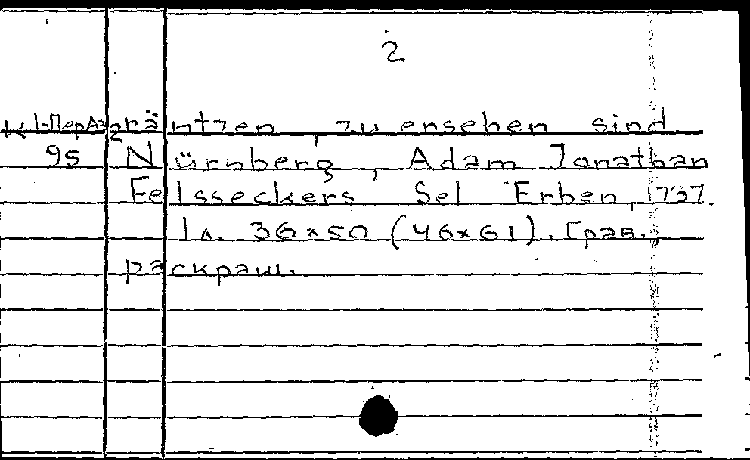 2
К 1-ПерАз gräntzen, zu ensehen sind
95 Nürnberg, Adam Jonathan
Felsseckers Sel Erben, 1737.
1 л. 36×50 (46×61). Грав.,
раскраш.